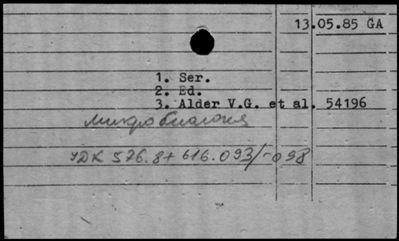 13.05.85 GA
1. Ser.
2. Ed.
3. Alder V.G. et al. 54196
микробиология
УДК 576.8+616.093/-098